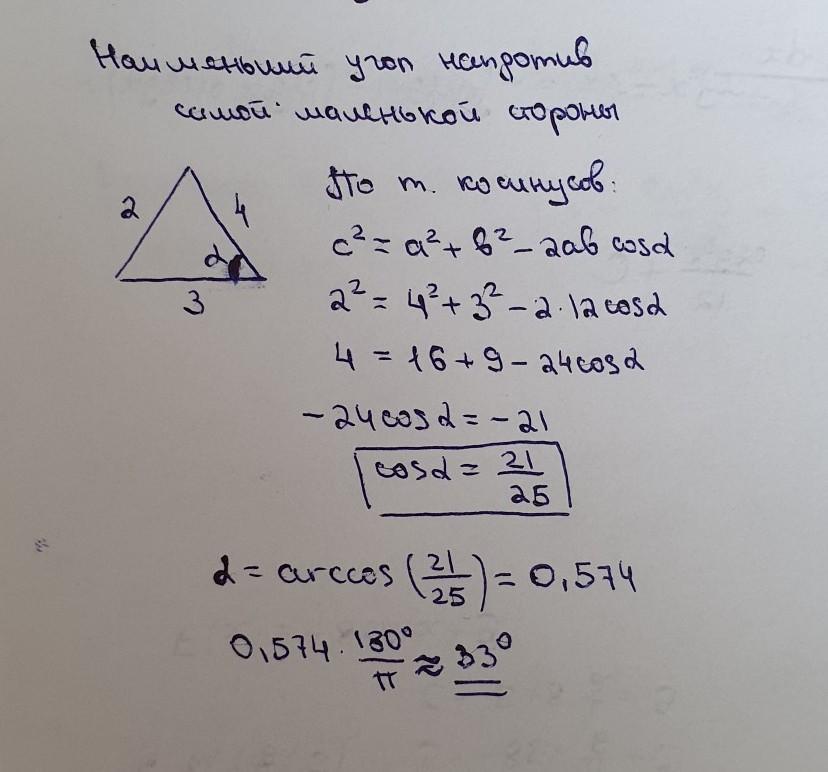 Наименьший угол напротив
самой маленькой стороны
2
4
α
3
По т. косинусов:
c² = a² + b² - 2ab cosα
2² = 4² + 3² - 2·12cosα
4 = 16 + 9 - 24cosα
-24cosα = -21
cosα = 21/25
α = arccos(21/25) = 0,574
0,574 · 180°/π ≈ 33°